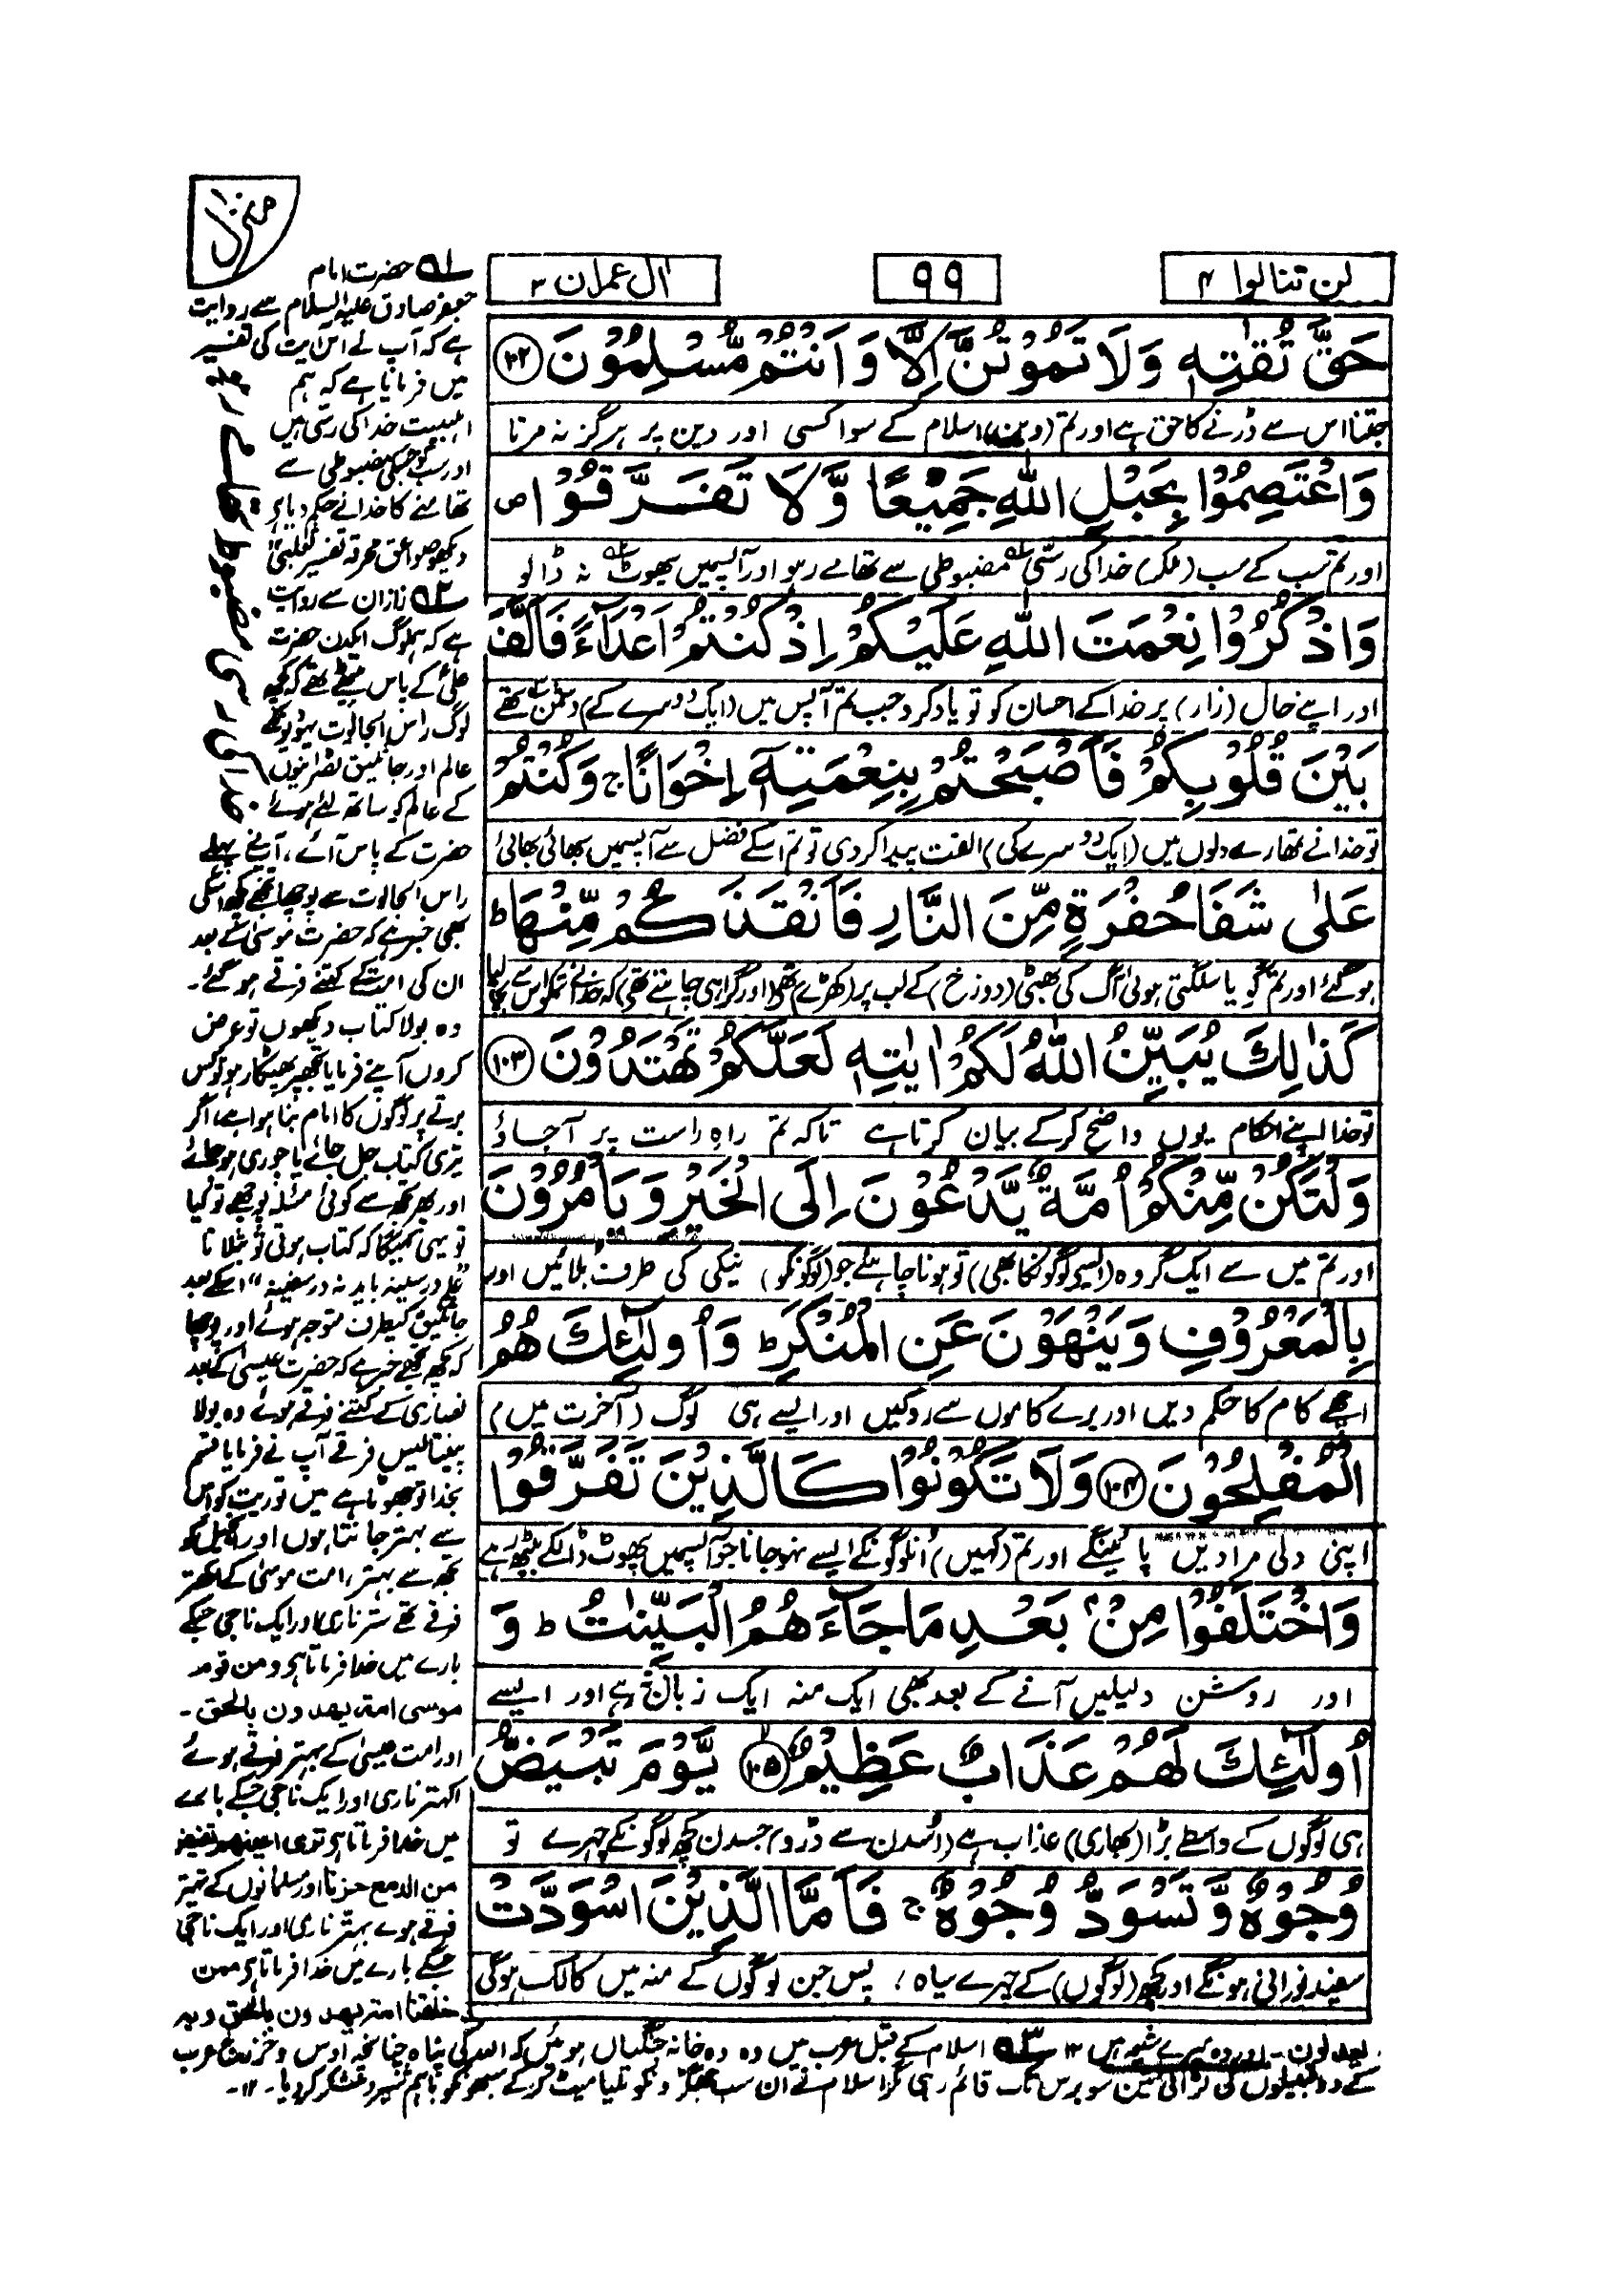 منزل ١
لن تنالوا ٤
٩٩
اٰل عمرٰن ٣
حَقَّ تُقٰتِهٖ وَلَا تَمُوْتُنَّ اِلَّا وَاَنْتُمْ مُّسْلِمُوْنَ ١٠٢
جتنا اس سے ڈرنے کا حق ہے اور تم (دین) اسلام کے سوا کسی اور دین پر ہرگز نہ مرنا
وَاعْتَصِمُوْا بِحَبْلِ اللّٰهِ جَمِيْعًا وَّلَا تَفَرَّقُوْا ص
اور تم سب کے سب (ملکر) خدا کی رسّی مضبوطی سے تھامے رہو اور آپسمیں پھوٹ نہ ڈالو
وَاذْكُرُوْا نِعْمَتَ اللّٰهِ عَلَيْكُمْ اِذْ كُنْتُمْ اَعْدَآءً فَاَلَّفَ
اور اپنے حال (زار) پر خدا کے احسان کو تو یاد کرو جب تم آپس میں (ایک دوسرے کے) دشمن تھے
بَيْنَ قُلُوْبِكُمْ فَاَصْبَحْتُمْ بِنِعْمَتِهٖٓ اِخْوَانًا ج وَكُنْتُمْ
تو خدا نے تمھارے دلوں میں (ایک دوسرے کی) الفت پیدا کر دی تو تم اسکے فضل سے آپسمیں بھائی بھائی
عَلٰى شَفَا حُفْرَةٍ مِّنَ النَّارِ فَاَنْقَذَكُمْ مِّنْهَا ط
ہو گئے اور تم گویا سلگتی ہوئی آگ کی بھٹی (دوزخ) کے لب پر (کھڑے) تھے اور گرا ہی چاہتے تھے کہ خدا نے تمکو اس سے بچا لیا
كَذٰلِكَ يُبَيِّنُ اللّٰهُ لَكُمْ اٰيٰتِهٖ لَعَلَّكُمْ تَهْتَدُوْنَ ١٠٣
تو خدا اپنے احکام یوں واضح کر کے بیان کرتا ہے تاکہ تم راہ راست پر آ جاؤ
وَلْتَكُنْ مِّنْكُمْ اُمَّةٌ يَّدْعُوْنَ اِلَى الْخَيْرِ وَيَأْمُرُوْنَ
اور تم میں سے ایک گروہ (ایسے لوگونکا بھی) تو ہونا چاہئے جو (لوگونکو) نیکی کی طرف بلائیں اور
بِالْمَعْرُوْفِ وَيَنْهَوْنَ عَنِ الْمُنْكَرِ ط وَاُولٰٓئِكَ هُمُ
اچھے کام کا حکم دیں اور برے کاموں سے روکیں اور ایسے ہی لوگ (آخرت میں)
الْمُفْلِحُوْنَ ١٠٤ وَلَا تَكُوْنُوْا كَالَّذِيْنَ تَفَرَّقُوْا
اپنی دلی مرادیں پائینگے اور تم (کہیں) انلوگونکے ایسے نہو جانا جو آپسمیں پھوٹ ڈالکے بیٹھ رہے
وَاخْتَلَفُوْا مِنْۢ بَعْدِ مَا جَآءَهُمُ الْبَيِّنٰتُ ط وَ
اور روشن دلیلیں آنے کے بعد بھی ایک منہ ایک زبان نہ رہے اور ایسے
اُولٰٓئِكَ لَهُمْ عَذَابٌ عَظِيْمٌ ١٠٥ يَّوْمَ تَبْيَضُّ
ہی لوگوں کے واسطے بڑا (بھاری) عذاب ہے (اُسدن سے ڈرو) جسدن کچھ لوگونکے چہرے تو
وُجُوْهٌ وَّتَسْوَدُّ وُجُوْهٌ ج فَاَمَّا الَّذِيْنَ اسْوَدَّتْ
سفید نورانی ہونگے اور کچھ (لوگوں) کے چہرے سیاہ، پس جن لوگوں کے منہ میں کالک ہوگی
ف١ حضرت امام
جعفر صادق علیہ السلام سے روایت
ہے کہ آپ نے اس آیت کی تفسیر
میں فرمایا ہے کہ ہم
اہلبیت خدا کی رسّی ہیں
اور سب کو جسکی مضبوطی سے
تھامنے کا خدا نے حکم دیا ہے
دیکھو صواعق محرقہ تفسیر ثعلبی
ف٢ زاذان سے روایت
ہے کہ ہملوگ ایکدن حضرت
علی کے پاس بیٹھے تھے کہ کچھ
لوگ راس الجالوت یہودیونکے
عالم اور جاثلیق نصرانیوں
کے عالم کو ساتھ لئے ہوئے
حضرت کے پاس آئے، آپنے پہلے
راس الجالوت سے پوچھا تجھے کچھ اسکی
بھی خبر ہے کہ حضرت موسیٰ کے بعد
ان کی امت کے کتنے فرقے ہو گئے۔
وہ بولا کتاب دیکھوں تو عرض
کروں آپنے فرمایا تجھپر پھٹکار ہو تو کس
برتے پر لوگوں کا امام بنا ہوا ہے، اگر
تیری کتاب جل جائے یا چوری ہو جائے
اور پھر تجھ سے کوئی مسئلہ پوچھے تو کیا
تو یہی کہیگا کہ کتاب ہوتی تو بتلاتا
"علم در سینہ باید نہ در سفینہ" اسکے بعد
جاثلیق کیطرف متوجہ ہوئے اور پوچھا
کہ کچھ تجھے خبر ہے کہ حضرت عیسیٰ کے بعد
نصاریٰ کے کتنے فرقے ہوئے وہ بولا
پینتالیس فرقے آپ نے فرمایا قسم
بخدا تو جھوٹا ہے میں توریت کو اس
سے بہتر جانتا ہوں اور انجیل کو
تجھ سے بہتر، امت موسیٰ کے اکہتر
فرقے تھے ستر ناری اور ایک ناجی جسکے
بارے میں خدا فرماتا ہے ومن قوم
موسى امة يهدون بالحق۔
اور امت عیسیٰ کے بہتر فرقے ہوئے
اکہتر ناری اور ایک ناجی جسکے بارے
میں خدا فرماتا ہے ترى اعينهم تفيض
من الدمع حزنا اور مسلمانوں کے تہتر
فرقے ہوے بہتر ناری اور ایک ناجی
جسکے بارے میں خدا فرماتا ہے ممن
خلقنا امة يهدون بالحق وبه
يعدلون۔ اور وہ میرے شیعہ ہیں ١٢ ف٣ اسلام کے قبل عرب میں وہ وہ خانہ جنگیاں ہوئیں کہ اللہ کی پناہ چنانچہ اوس و خزرج عرب
کے دو قبیلوں کی لڑائی تین سو برس تک قائم رہی مگر اسلام نے ان سب جھگڑونکو تلیامیٹ کر کے سبھونکو باہم شیر و شکر کر دیا۔ ١٢۔
خدا کی رسی مضبوط تھامے رہو